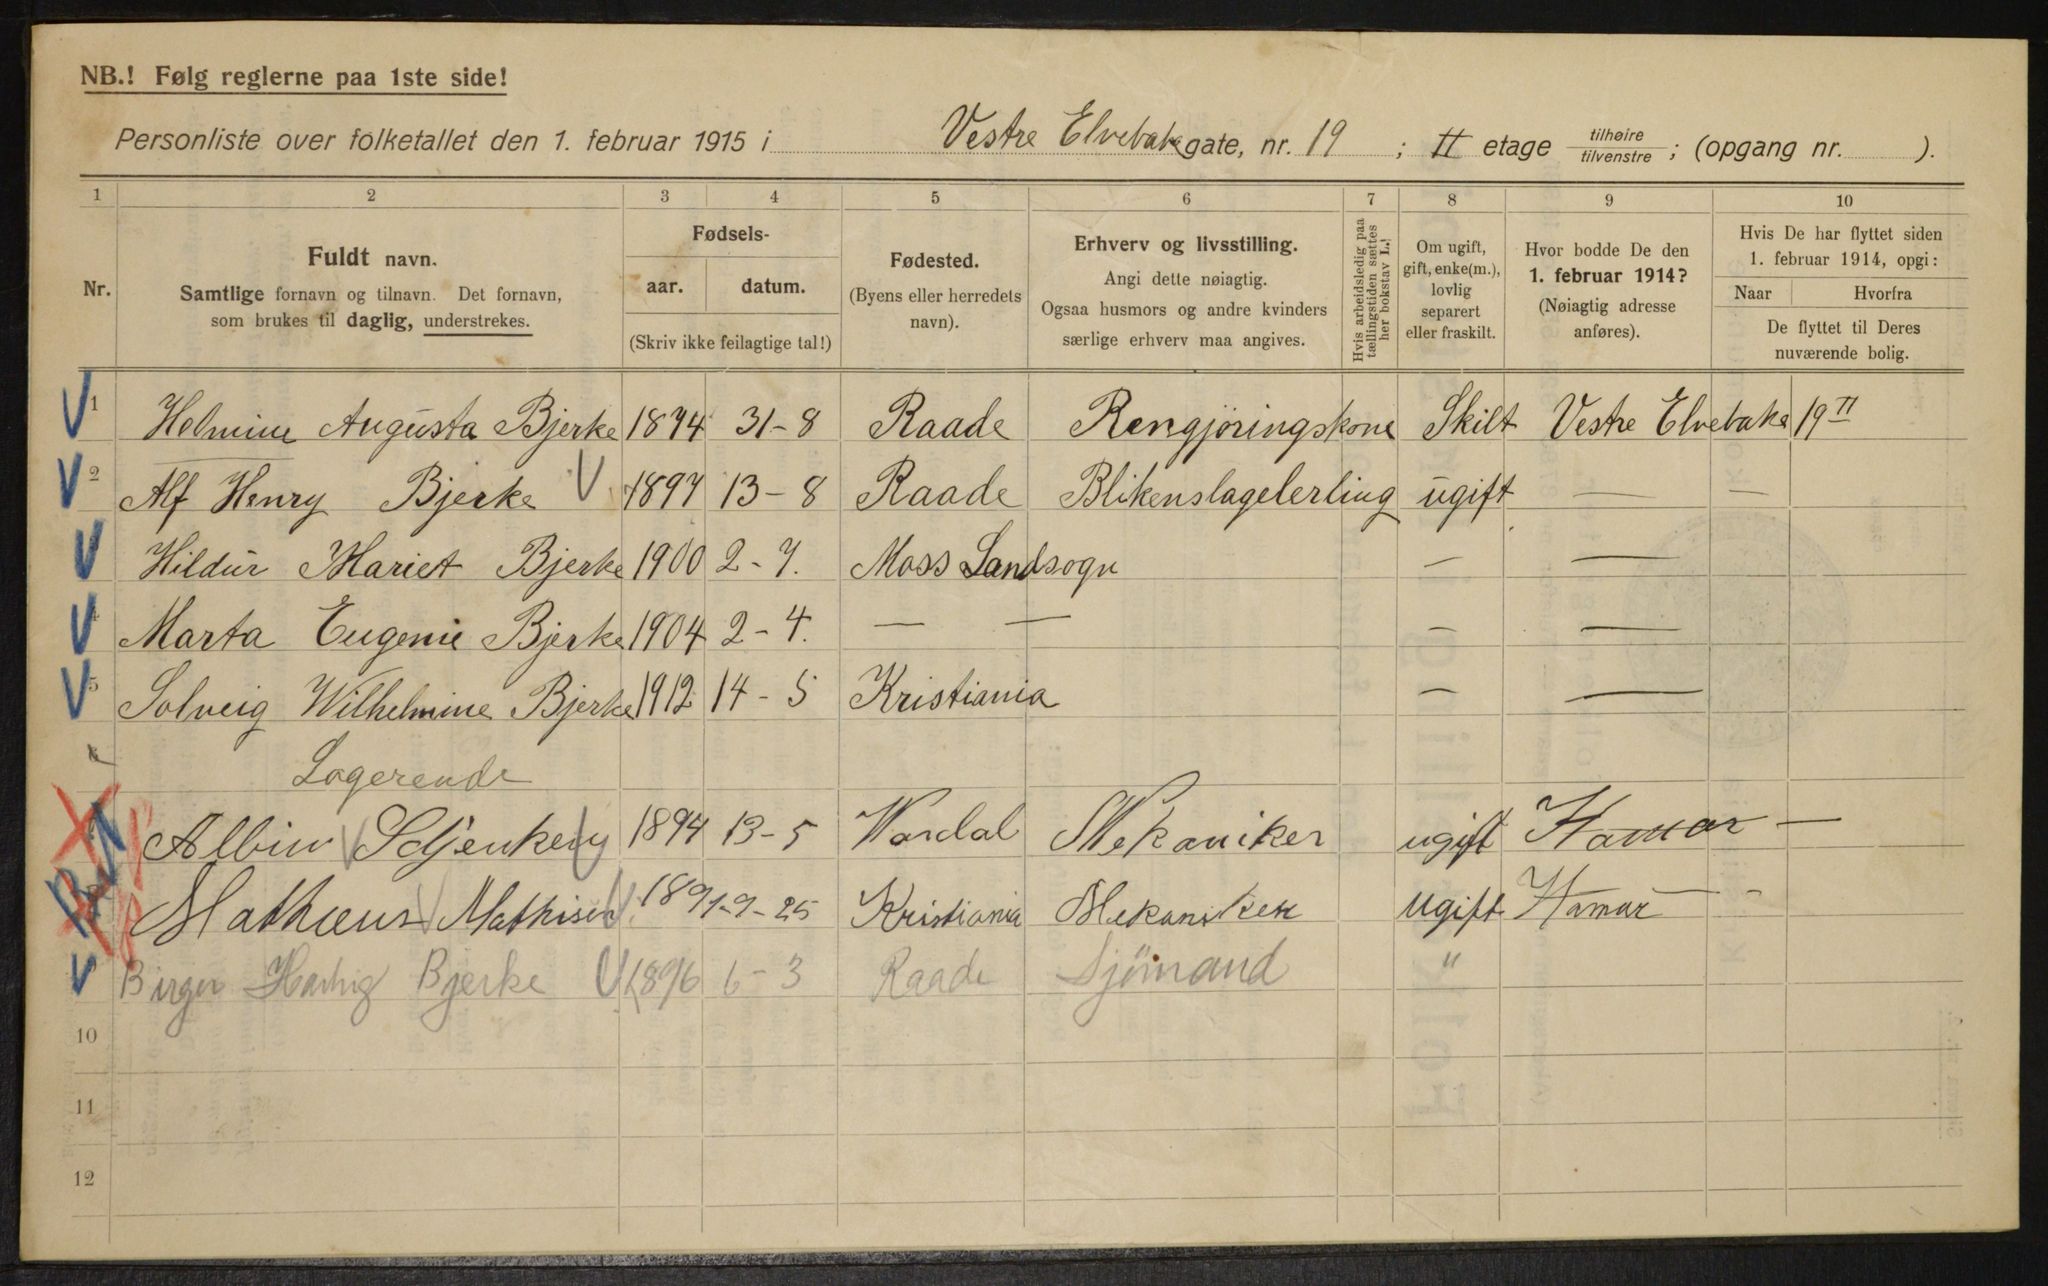 NB.! Følg reglerne paa 1ste side!
Personliste over folketallet den 1. februar 1915 i Vestre Elvebakke gate, nr. 19 ; II etage tilhøire/tilvenstre ; (opgang nr. ).
1 2 3 4 5 6 7 8 9 10
Nr.
Fuldt navn.
Samtlige fornavn og tilnavn. Det fornavn,
som brukes til daglig, understrekes.
Fødsels-
aar. datum.
(Skriv ikke feilagtige tal!)
Fødested.
(Byens eller herredets
navn).
Erhverv og livsstilling.
Angi dette nøiagtig.
Ogsaa husmors og andre kvinders
særlige erhverv maa angives.
Hvis arbeidsledig paa
tællingstiden sættes
her bokstav L.!
Om ugift,
gift, enke(m.),
lovlig
separert
eller fraskilt.
Hvor bodde De den
1. februar 1914?
(Nøiagtig adresse
anføres).
Hvis De har flyttet siden
1. februar 1914, opgi:
Naar Hvorfra
De flyttet til Deres
nuværende bolig.
1 Helmine Augusta Bjerke 1874 31-8 Raade Rengjøringskone Skilt Vestre Elvebake 19 II
2 Alf Henry Bjerke 1897 13-8 Raade Blikenslagelerling ugift — —
Hildur Mariet Bjerke 1900 2-7. Moss Landsogn — —
4 Marta Eugenie Bjerke 1904 2-4. — — — —
5 Solveig Wilhelmine Bjerke 1912 14-5 Kristiania — —
6 Logerende
Albin 1894 13-5 Vardal Mekaniker ugift Hamar —
Mathæus Mathisen 1891 9-25 Kristiania Mekaniker ugift Hamar — -
Birger Hartvig Bjerke 1896 6-3 Raade Sjömand "
10
11
12